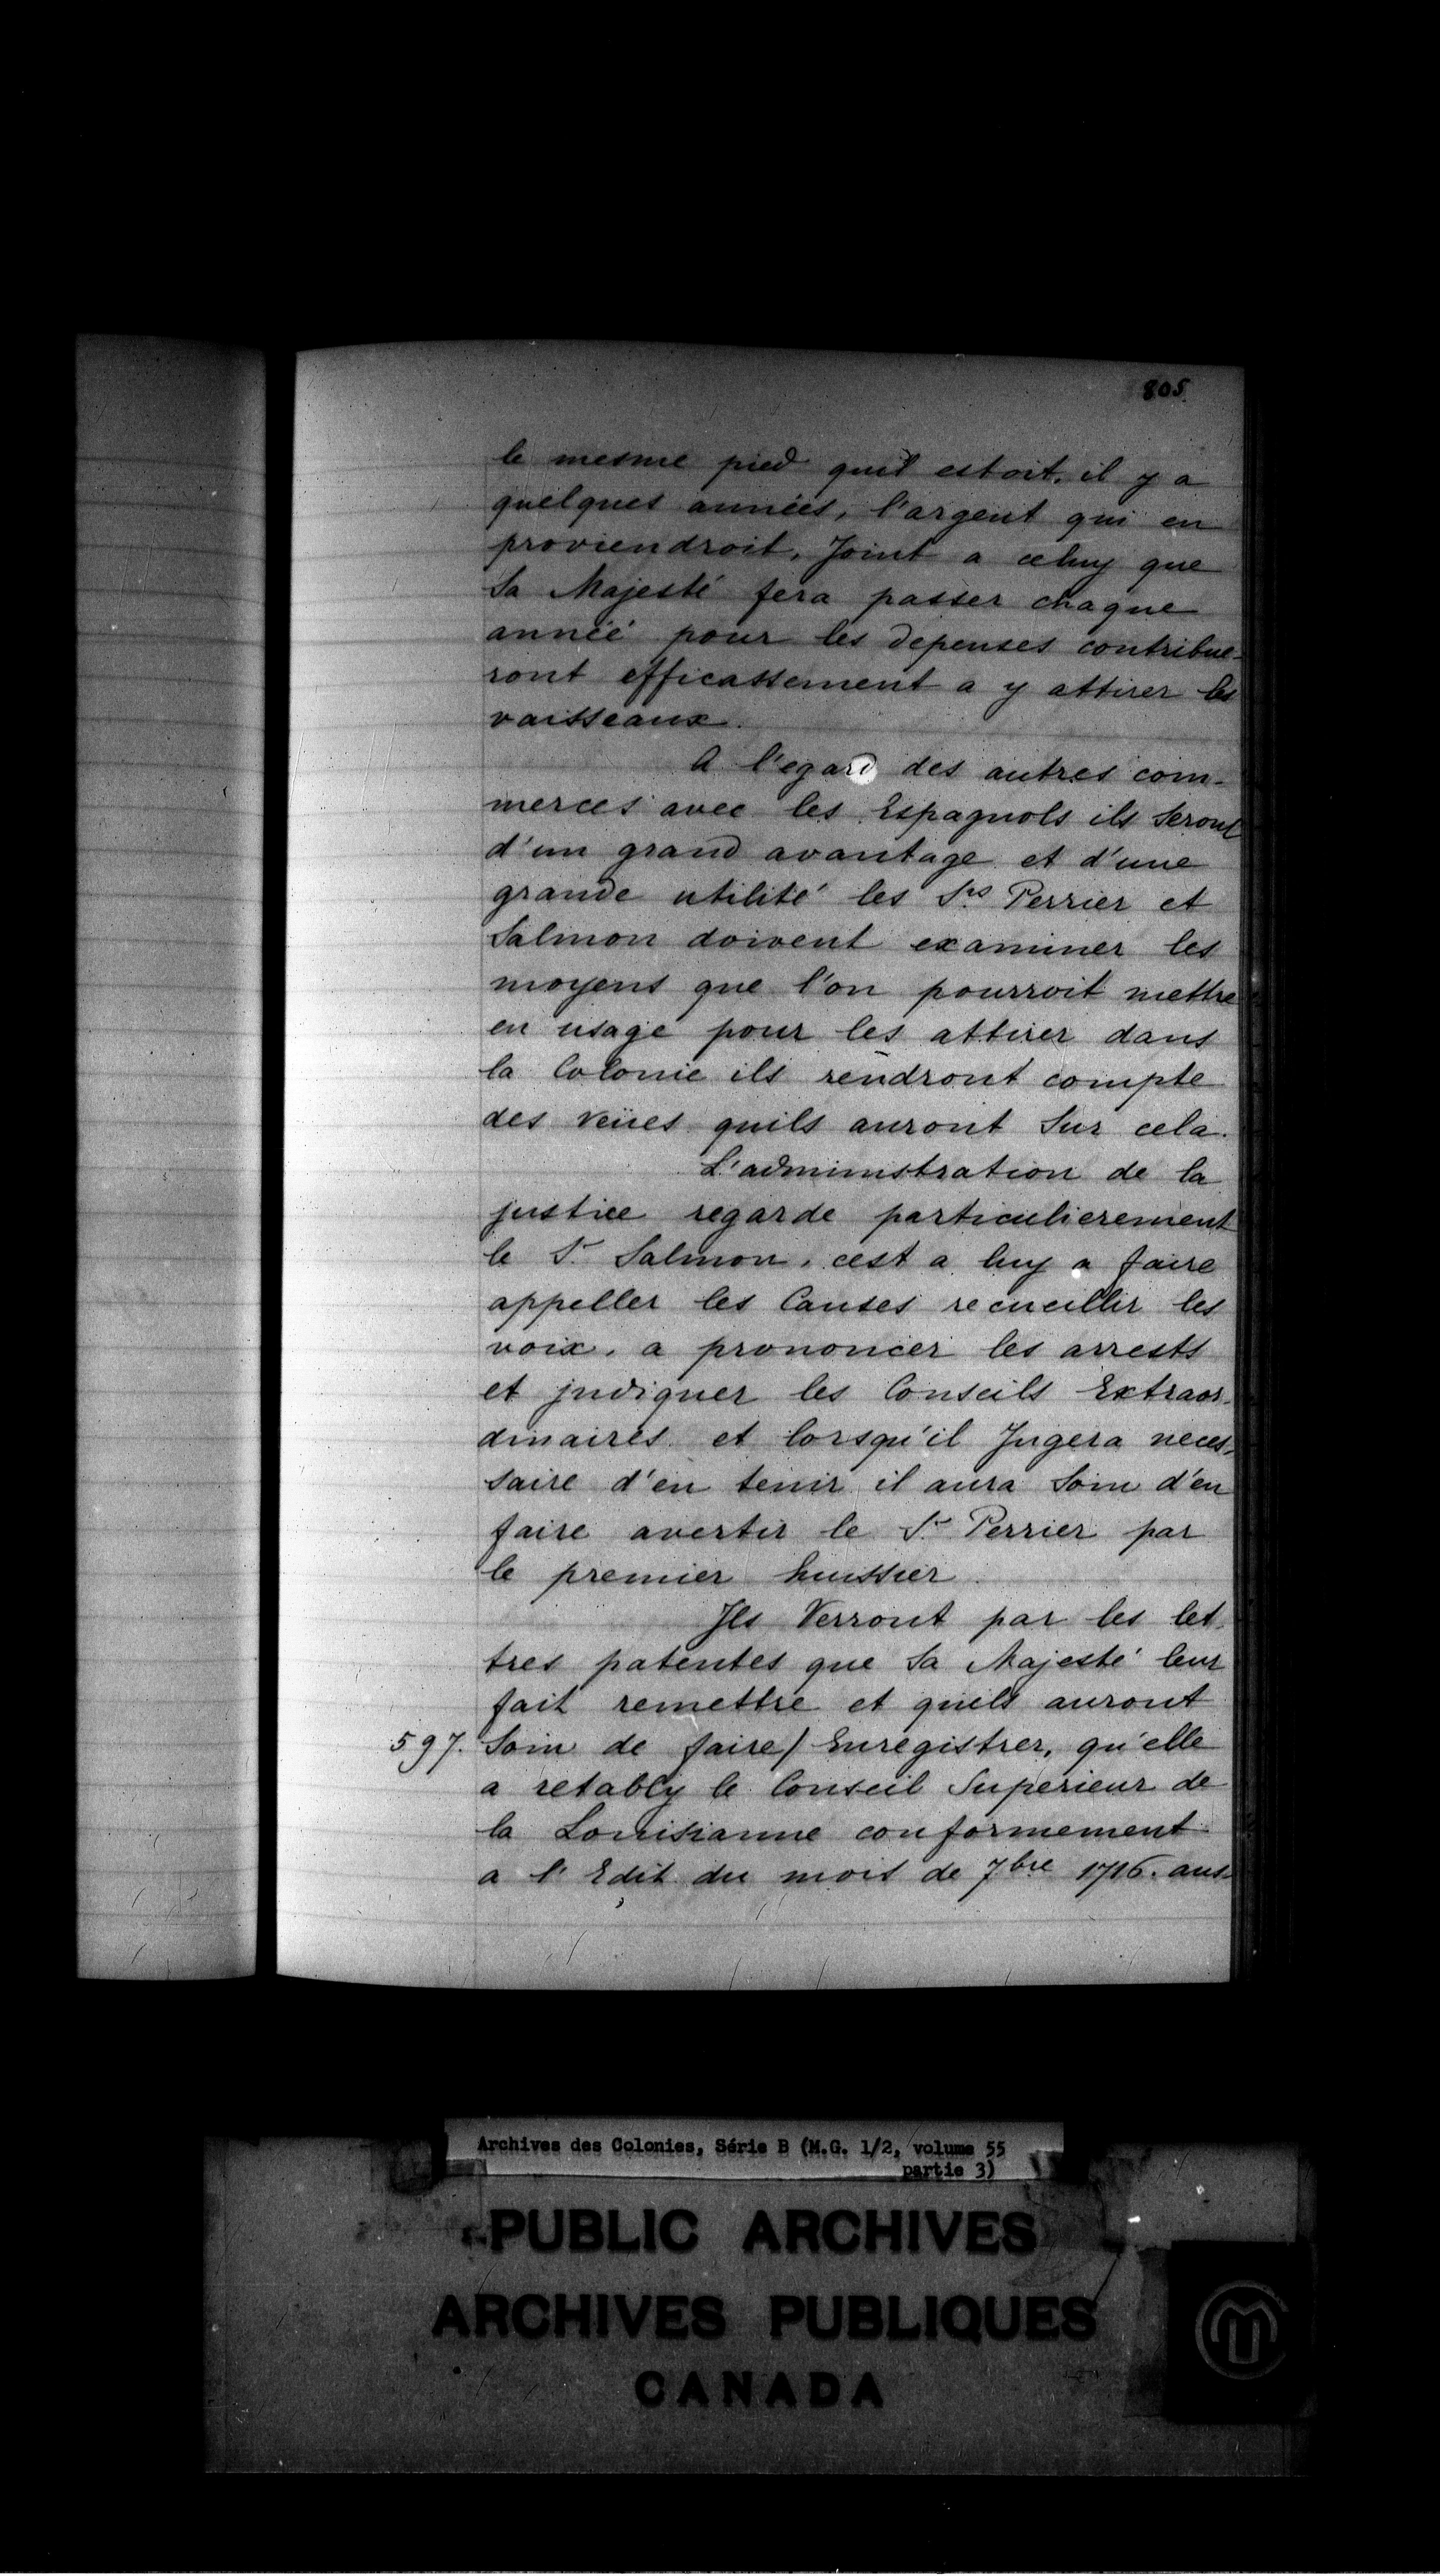 805.
le mesme pied quil estoit, il y a
quelques années, l'argent qui en
proviendroit, Joint a celuy que
Sa Majesté fera passer chaque
année pour les depenses contribue-
ront efficassement a y attirer les
vaisseaux.
A l'egard des autres com-
merces avec les Espagnols ils Seront
d'un grand avantage et d'une
grande utilité les Srs Perrier et
Salmon doivent examiner les
moyens que l'on pourroit mettre
en usage pour les attirer dans
la Colonie ils rendront compte
des veües quils auront Sur cela.
L'administration de la
justice regarde particulierement
le Sr Salmon, cest a luy a faire
appeller les Causes recueillir les
voix, a prononcer les arrests
et indiquer les Conseils Extraor-
dinaires et lorsqu'il Jugera neces-
saire d'en tenir il aura Soin d'en
faire avertir le Sr Perrier par
le premier huissier.
Ils Verront par les let-
tres patentes que Sa Majesté leur
fait remettre et quils auront
597. Soin de faire/Enregistrer, qu'elle
a retably le Conseil Superieur de
la Louisianne conformement
a l'Edit du mois de 7bre 1716. aus-
Archives des Colonies, Série B (M.G. 1/2, volume 55
partie 3)
PUBLIC ARCHIVES
ARCHIVES PUBLIQUES
CANADA